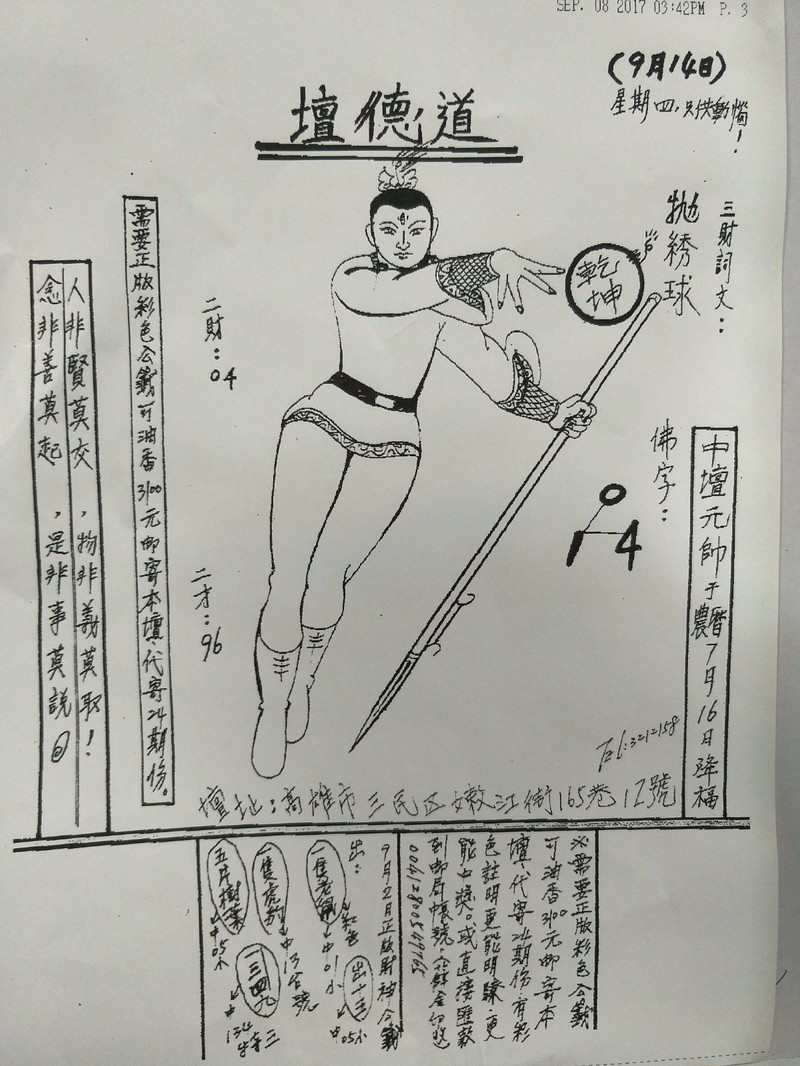 SEP. 08 2017 03:42PM P. 3
(9月14日)
星期四,只供動惱!
壇德道
三財詞文:
拋綉球
乾坤
佛字:
0
1 4
中壇元帥于農曆7月16日降福
二財:04
二才:96
需要正版彩色公籤可油香3100元邮寄本壇、代寄24期份。
人非賢莫交,物非義莫取!
念非善莫起,是非事莫說@
Tel:3212158
壇址:高雄市三民区嫩江街165巷12號
※需要正版彩色公籤
可油香3100元邮寄本
壇、代寄24期份、有彩
色註明更能明瞭、更
能中獎。或直接匯款
到邮局帳號
9月2月正版財神公籤
出:
紅色
中01小
出十三
中05小
一隻虎
中13合號
三四九
五片樹葉
中05小